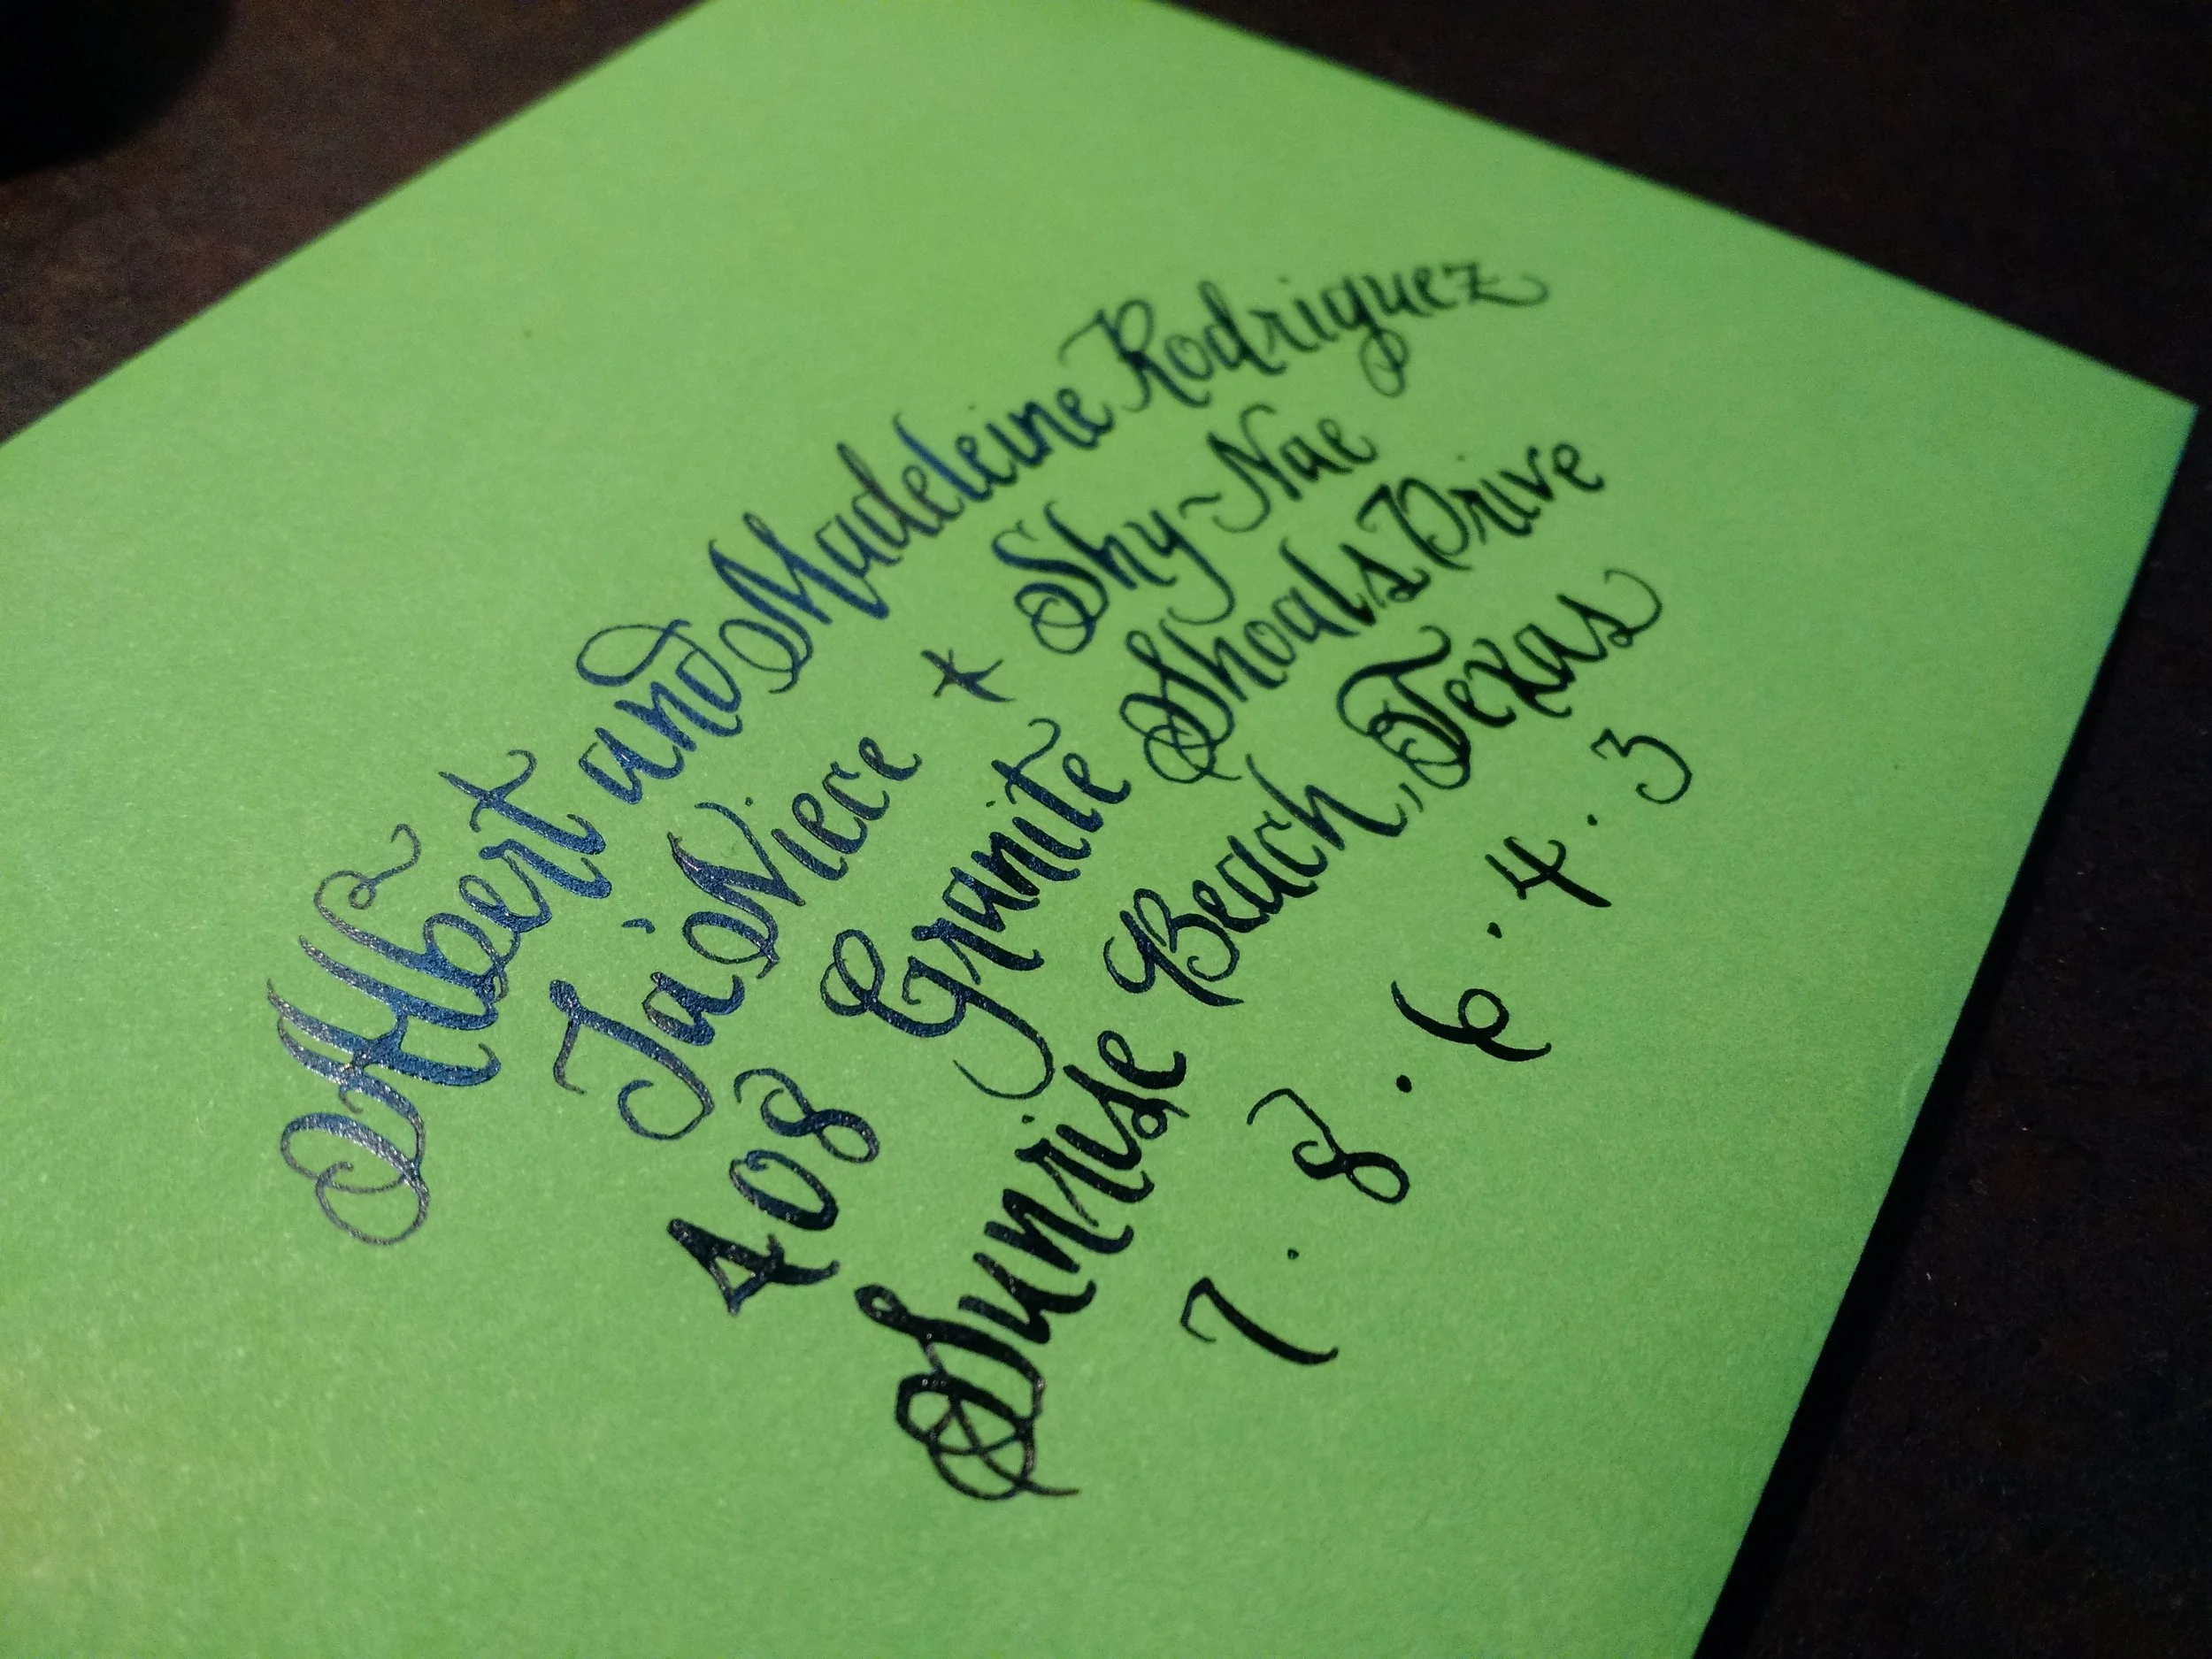 Albert and Madeleine Rodriguez
Ja'Niece * Shy-Nae
408 Granite Shoals Drive
Sunrise Beach, Texas
7.8.6.4.3